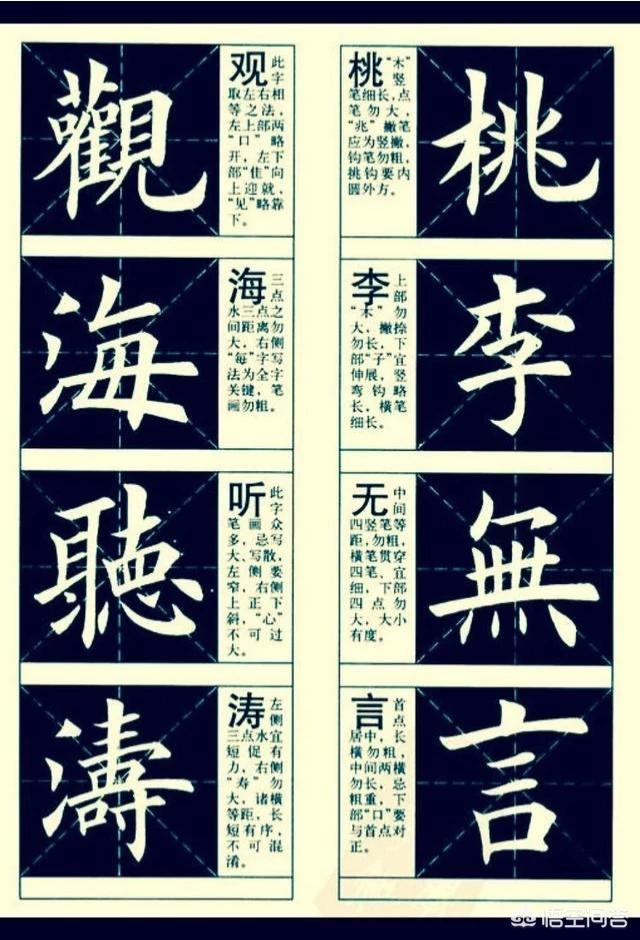 桃
桃
"木"
竖
笔细长,点
笔勿大,
"兆"撇笔
应为竖撇,
钩笔勿粗,
挑钩要内
圆外方。
李
李
上
部
"木"勿
大,撇捺
勿长,下
部"子"宜
伸展,竖
弯钩略
长,横笔
细长。
無
无
中
间
四竖笔等
距,勿粗,
横笔贯穿
四笔、宜
细,下部
四点勿
大,大小
有度。
言
言
首
点
居中,长
横勿粗,
中间两横
勿长,忌
粗重,下
部"口"要
与首点对
正。
觀
观
此
字
取左右相
等之法,
左上部两
"口"略
开,左下
部"隹"向
上迎就,
"见"略靠
下。
海
海
三
点
水三点之
间距离勿
大,右侧
"每"字写
法为全字
关键,笔
画勿粗。
聽
听
此
字
笔画众
多,忌写
大、写散,
左侧要
窄,右侧
上正下
斜,"心"
不可过
大。
濤
涛
左
侧
三点水宜
短促有
力,右侧
"寿"勿
大,诸横
等距,长
短有序,
不可混
淆。
悟空问答